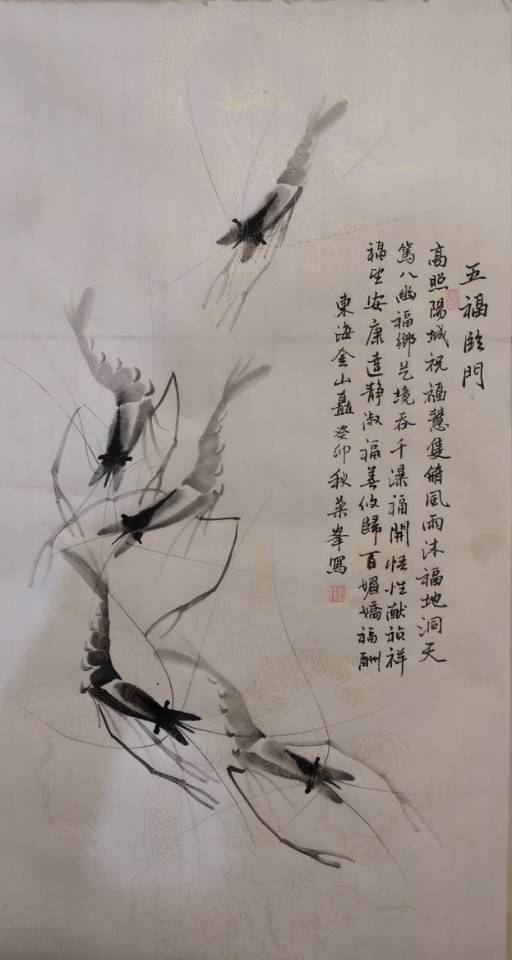 五福臨門
高照陽城祝福慧雙脩風雨沐福地洞天
篤八幽福鄉艺境吞千瀑福開悟性献祯祥
福坐安康達靜淑福善攸歸百媚嬌福酬
東海金山聶癸卯秋榮峯寫